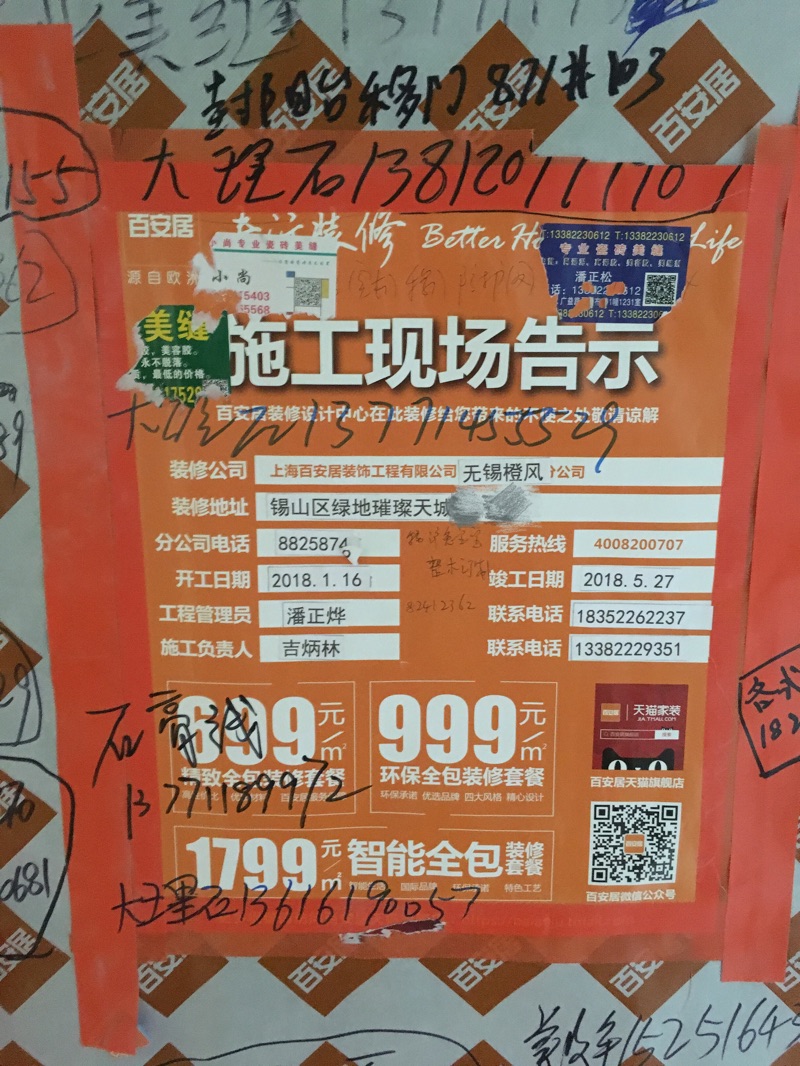 美缝
百安居
百安居
百安居
百安居
封阳台移门 871#103
155
大理石
百安居
装修 Better
Life
源自欧洲
小尚专业瓷砖美缝
小尚
15403
65568
T:13382230612 T:13382230612
专业瓷砖美缝
潘正松
美缝
美容胶。
永不脱落。
最低的价格。
1752
施工现场告示
百安居装修设计中心在此装修给您带来的不便之处敬请谅解
大理石13771455529
装修公司 上海百安居装饰工程有限公司 无锡橙风 分公司
装修地址 锡山区绿地璀璨天城
分公司电话 8825874
服务热线 4008200707
开工日期 2018.1.16
竣工日期 2018.5.27
82412362
工程管理员 潘正烨
联系电话 18352262237
施工负责人 吉炳林
联系电话 13382229351
699元/m²
精致全包装修套餐
999元/m²
环保全包装修套餐
环保承诺 优选品牌 四大风格 精心设计
天猫家装
JIA.TMALL.COM
百安居天猫旗舰店
石膏线
13771189972
1799元/m²
智能全包装修套餐
国际品牌 环保承诺 特色工艺
百安居微信公众号
大理石13616190057
0681
百安居
百安居
百安居
百安居
1525164